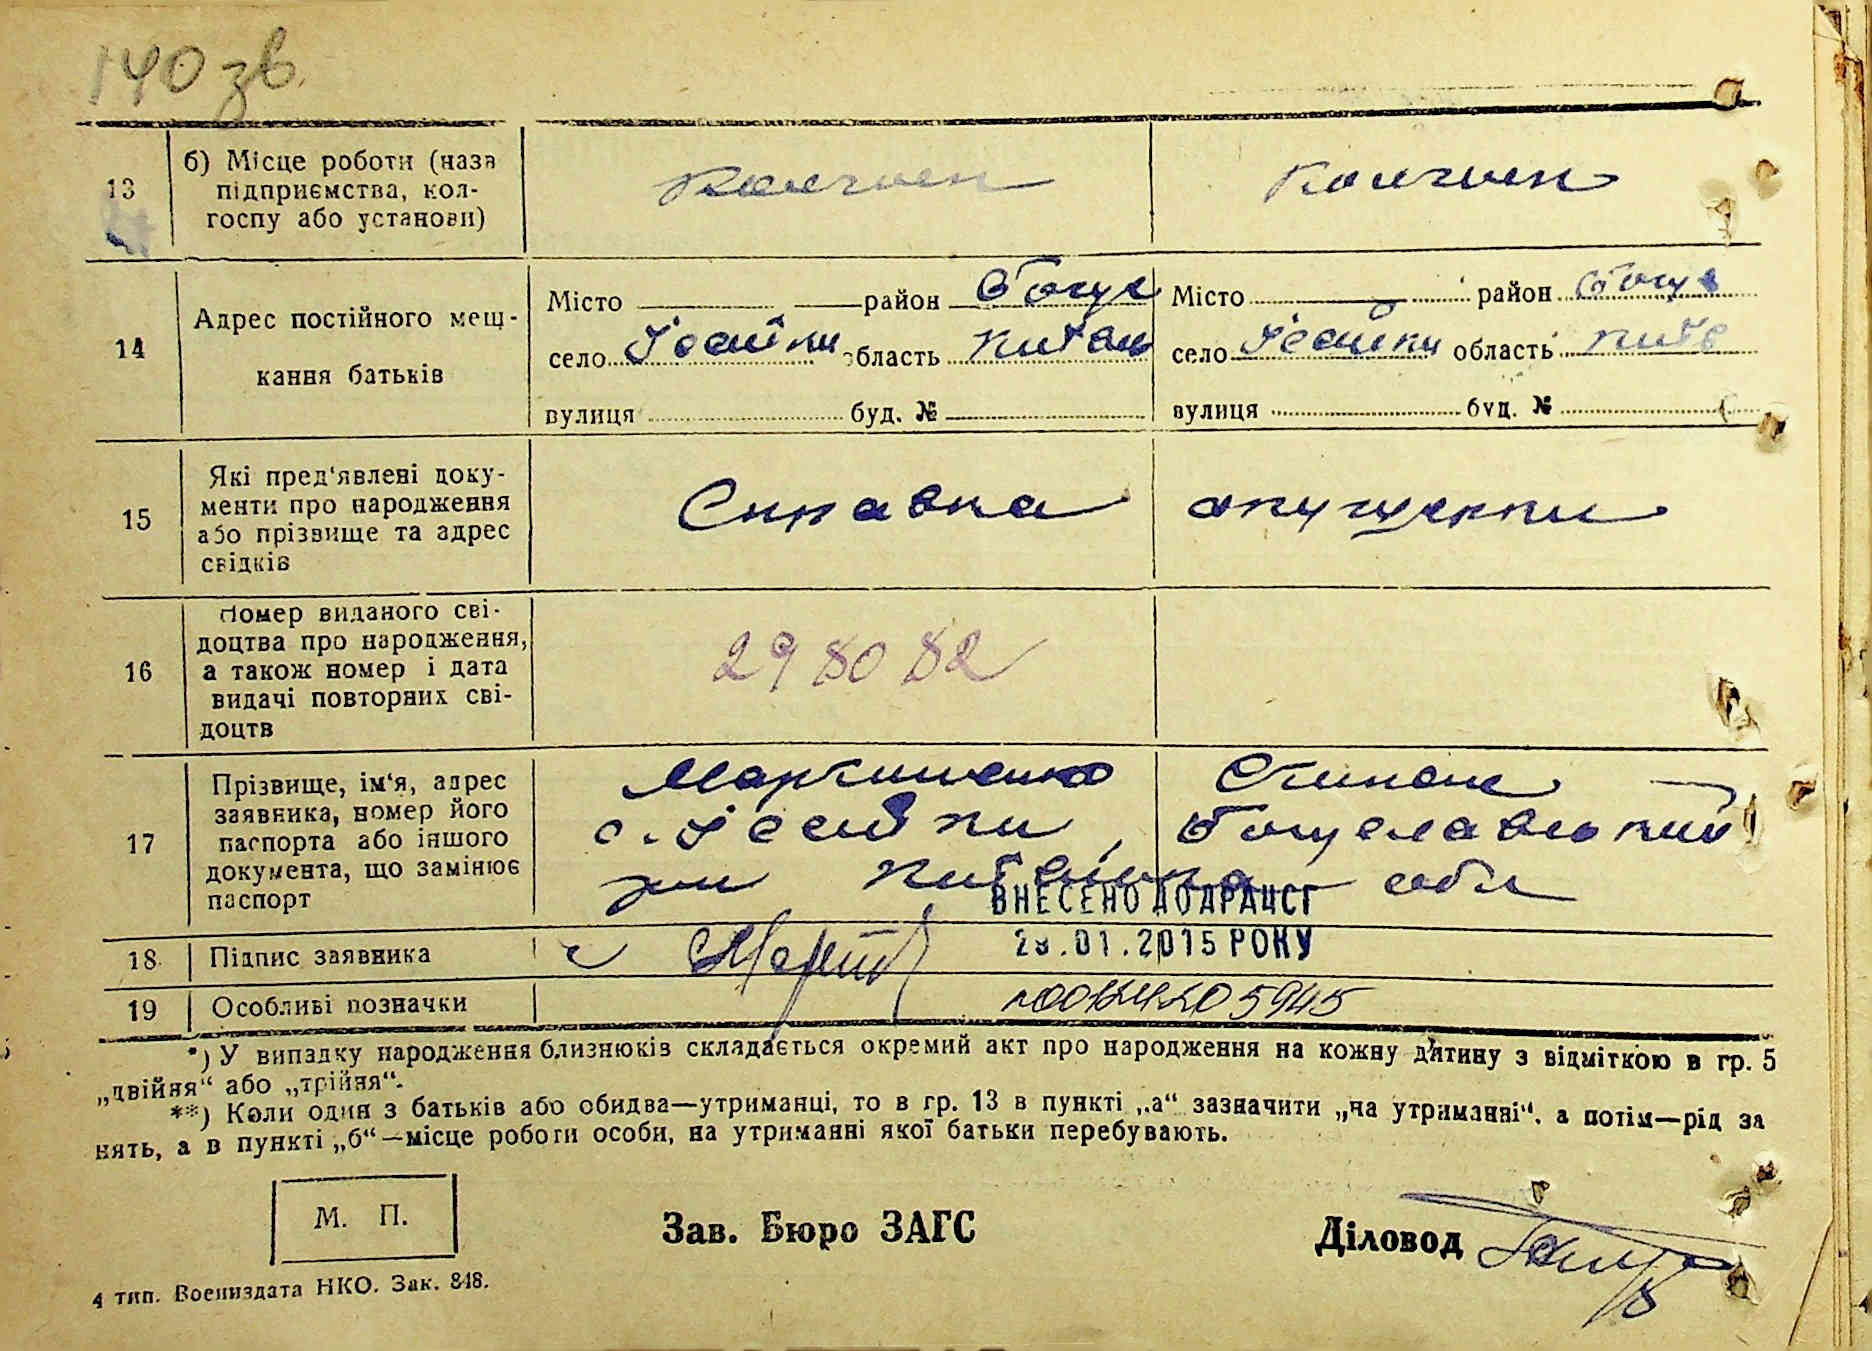 140 зв.
13
б) Місце роботи (назва
підприємства, кол-
госпу або установи)
Колгосп
Колгосп
14
Адрес постійного меш-
кання батьків
Місто район Богус
село область Київськ
вулиця буд. №
Місто район Богус
село область Київ
вулиця буд. №
15
Які пред'явлені доку-
менти про народження
або прізвище та адрес
свідків
Справка акушерки
16
Номер виданого сві-
доцтва про народження,
а також номер і дата
видачі повторних сві-
доцтв
298082
17
Прізвище, ім'я, адрес
заявника, номер його
паспорта або іншого
документа, що замінює
паспорт
Степан
с. Богуславський
рн Київська обл
ВНЕСЕНО ДО ДРАЦСГ
18
Підпис заявника
.01.2015 РОКУ
19
Особливі позначки
*) У випадку народження близнюків складається окремий акт про народження на кожну дитину з відміткою в гр. 5
„двійня“ або „трійня“.
**) Коли один з батьків або обидва—утриманці, то в гр. 13 в пункті „а“ зазначити „на утриманні“, а потім—рід за
нять, а в пункті „б“—місце роботи особи, на утриманні якої батьки перебувають.
М. П.
Зав. Бюро ЗАГС
Діловод
4 тип. Воениздата НКО. Зак. 848.